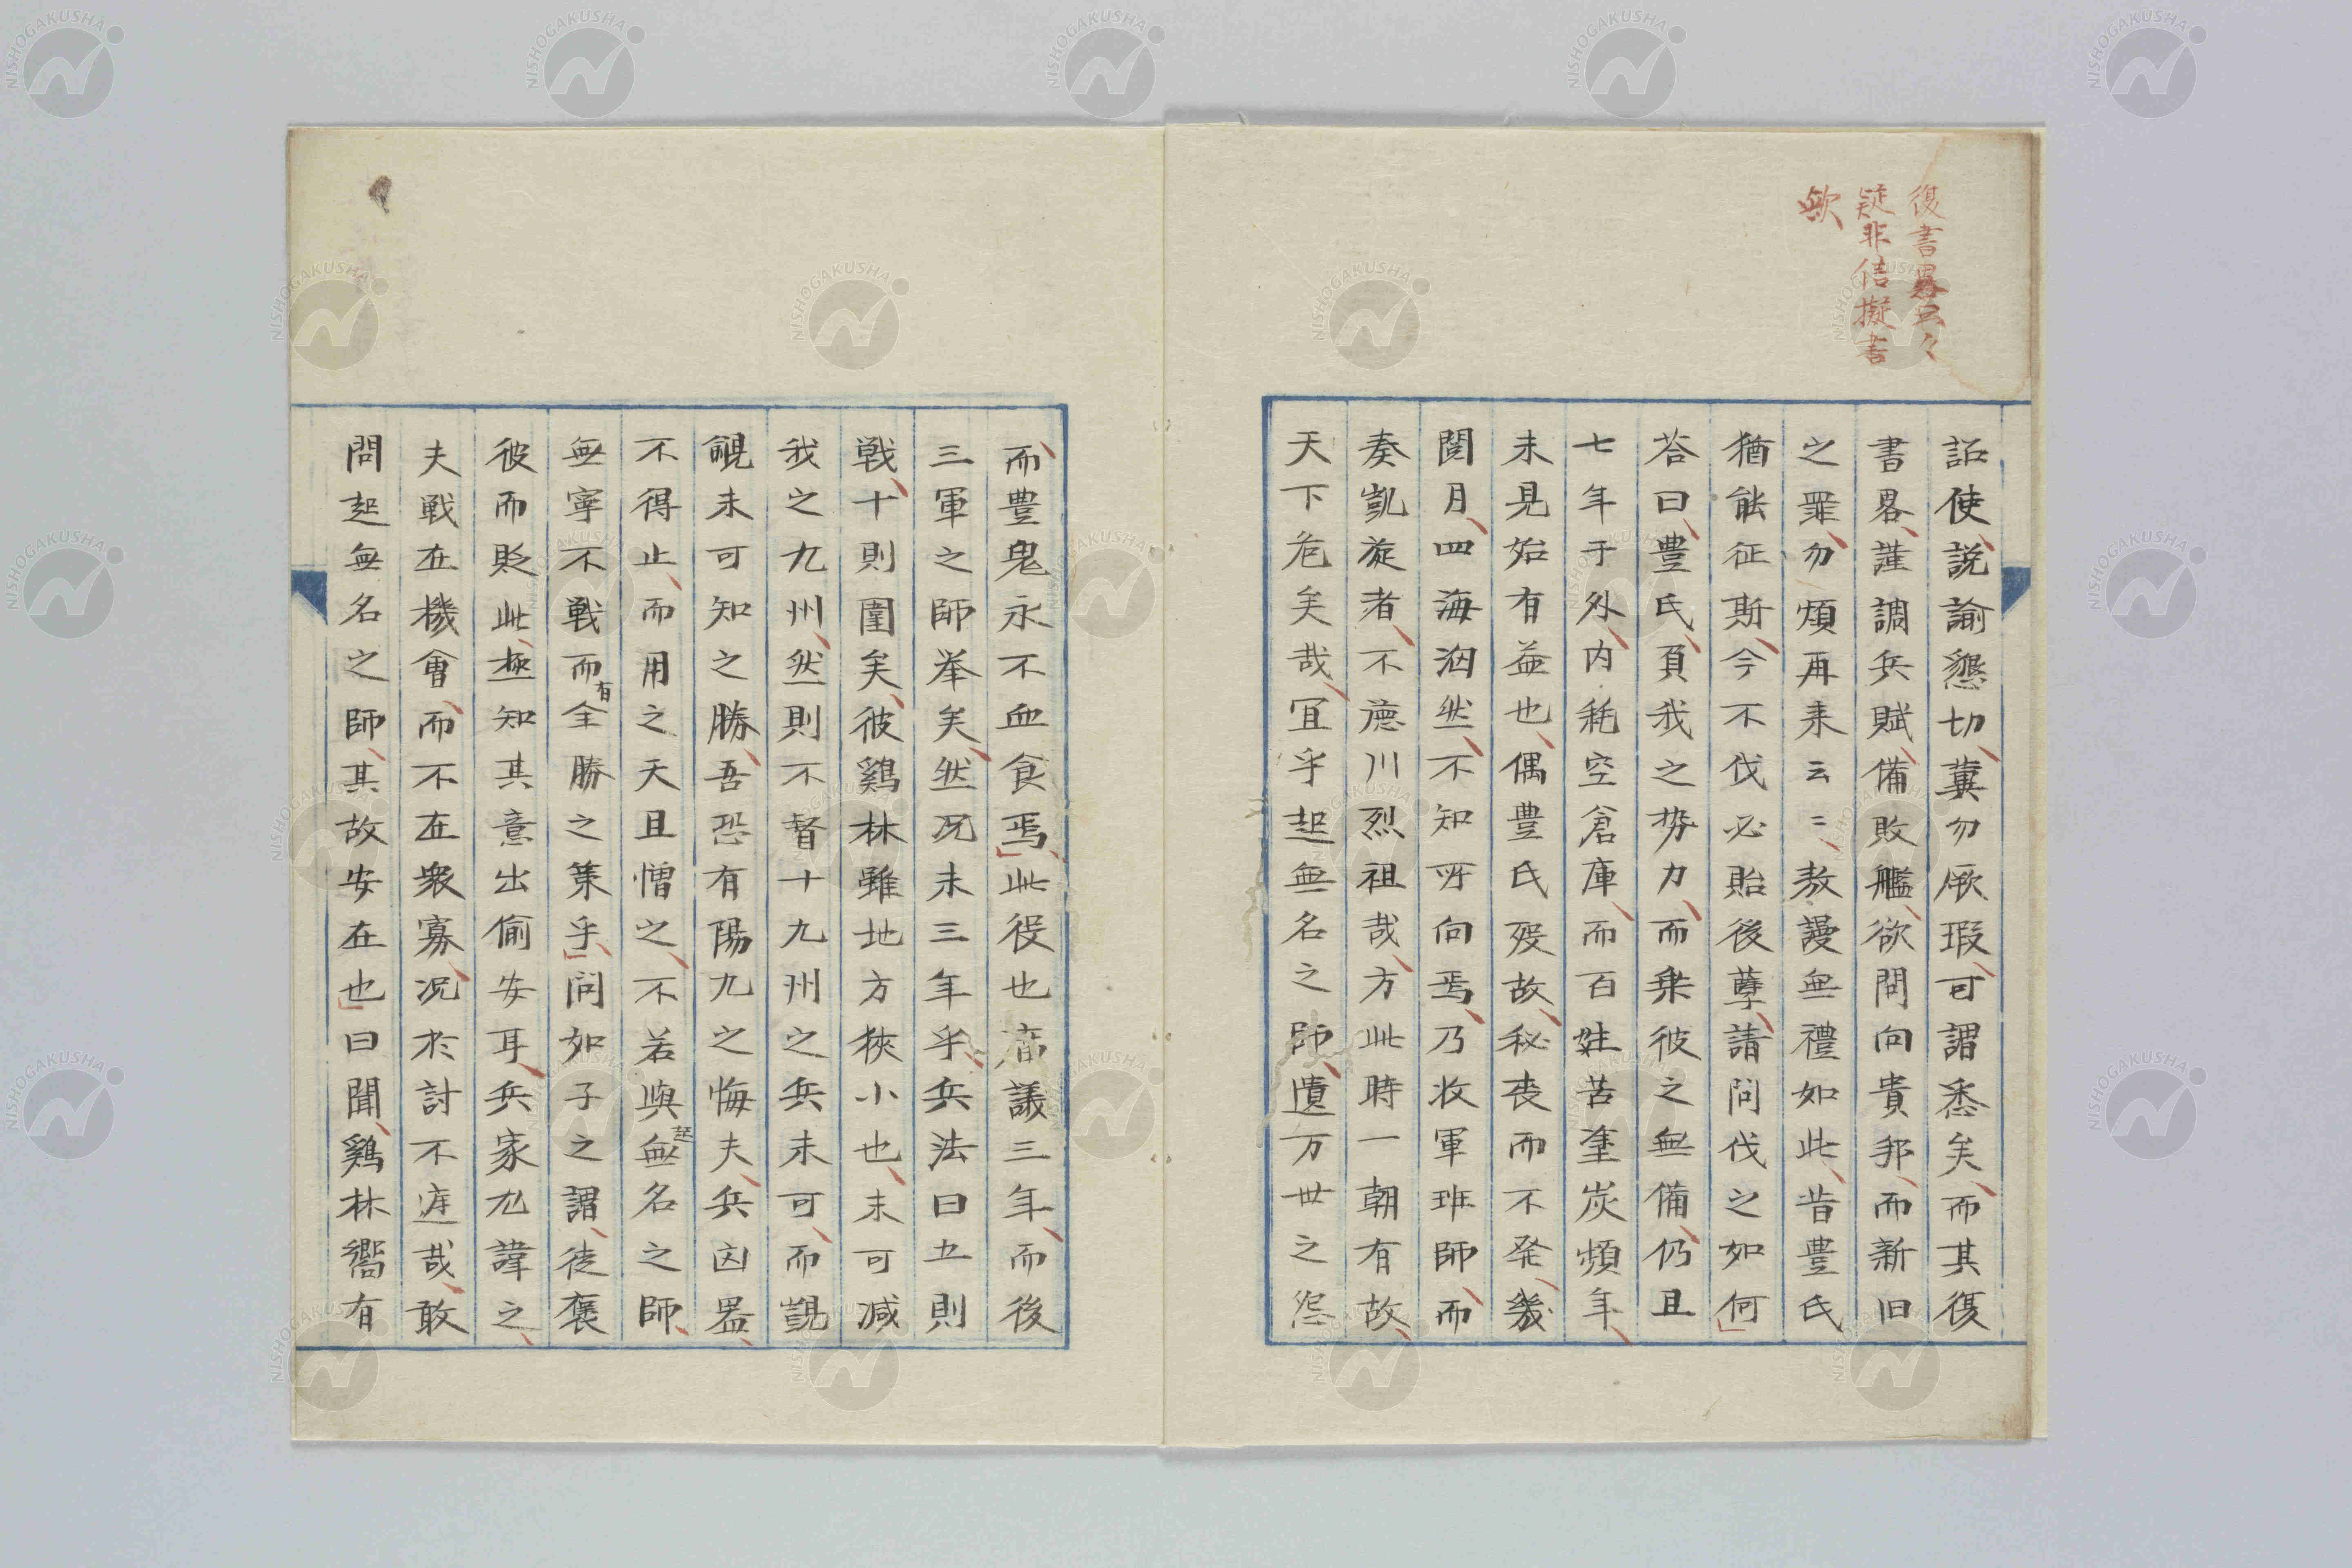 復書畧云々
疑非信擬書
歟
詔使説諭懇切冀勿厥瑕可謂悉矣而其復
書畧謹調兵賦備敗艦欲問向貴邦而新旧
之罪勿煩再来云〻敖謾無禮如此昔豊氏
猶能征斯今不伐必貽後孽請問伐之如何
荅曰豊氏負我之势力而乗彼之無備仍且
七年于外内耗空倉庫而百姓苦塗炭頻年
未見始有益也偶豊氏殁故秘丧而不発幾
閲月四海洶然不知所向焉乃收軍班師而
奏凱旋者不徳川烈祖哉方此時一朝有故
天下危矣哉冝乎起無名之師遺万世之怨
而豊鬼永不血食焉此役也 議三年而後
三軍之師挙矣然况未三年乎兵法曰五則
戦十則圍矣彼鷄林雖地方狹小也未可减
我之九州然則不督十九州之兵未可而覬
覦未可知之勝吾恐有陽九之悔夫兵凶噐
不得止而用之天且憎之不若與至無名之師
無寧不戦而有全勝之策乎問如子之謂徒襃
彼而貶此極知其意出偷安耳兵家尤諱之
夫戦在機會而不在衆寡况於討不庭哉敢
問起無名之師其故安在也曰聞鷄林嚮有